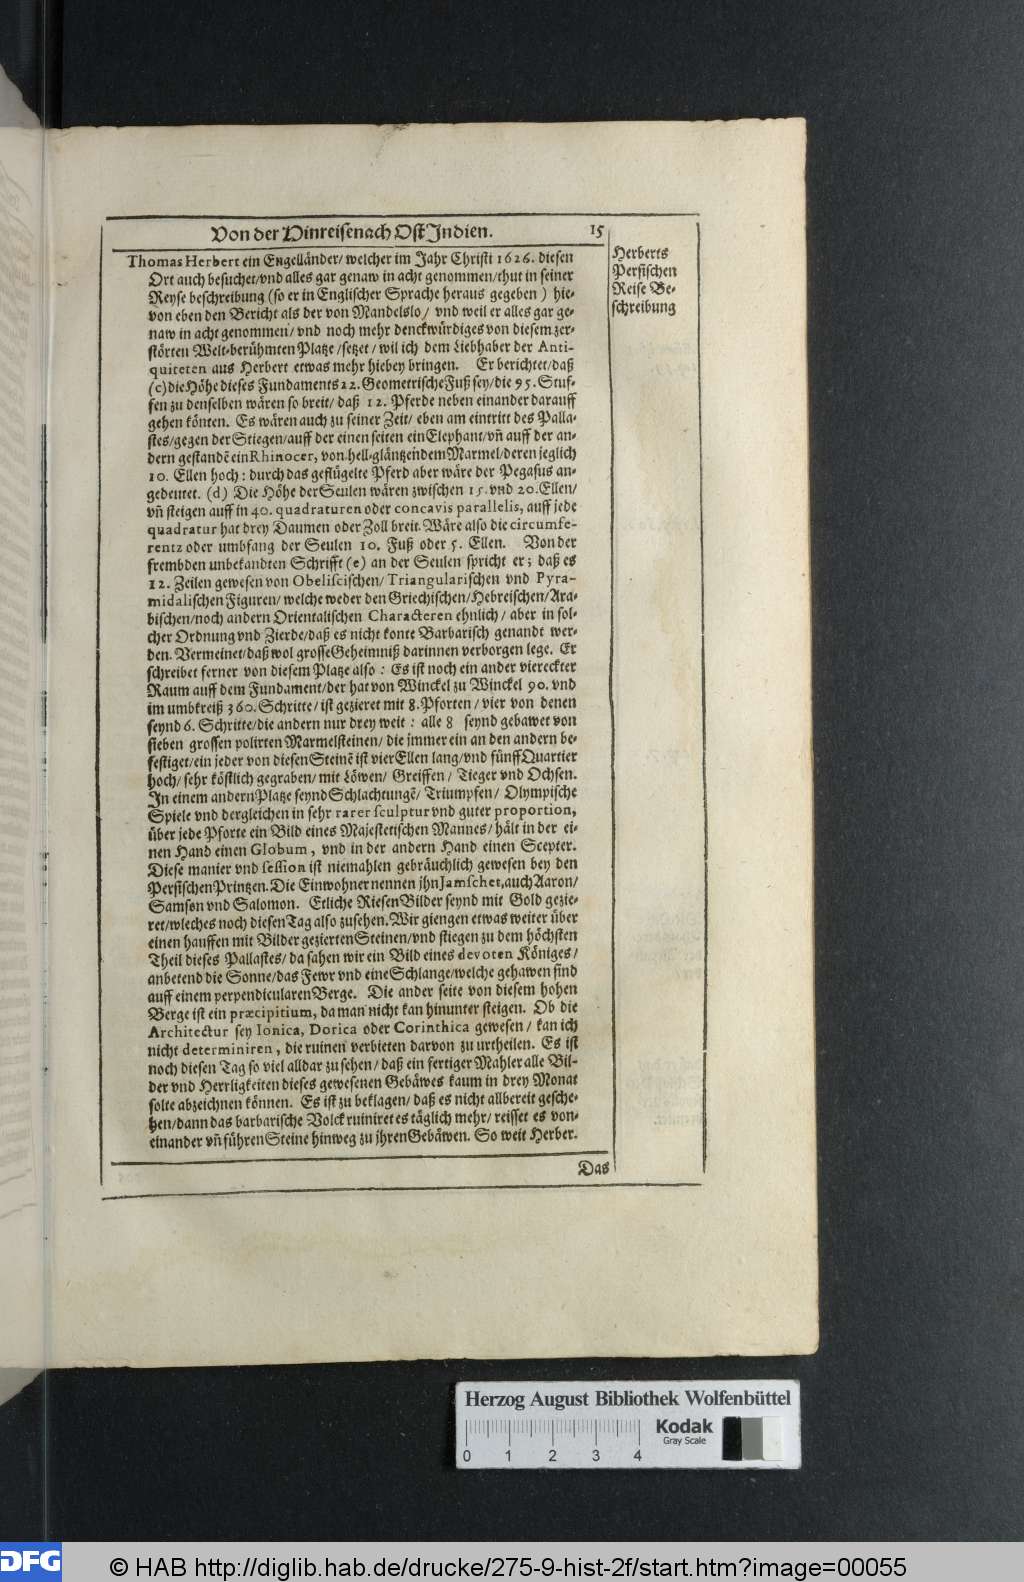 Von der Hinreise nach Ost Indien. 15
Thomas Herbert ein Engelländer/ welcher im Jahr Christi 1626. diesen
Ort auch besuchet/vnd alles gar genaw in acht genommen/thut in seiner
Reyse beschreibung (so er in Englischer Sprache heraus gegeben) hie-
von eben den Bericht als der von Mandelslo/ vnd weil er alles gar ge-
naw in acht genommen/ vnd noch mehr denckwürdiges von diesem zer-
störten Welt-berühmten Platze/setzet/ wil ich dem Liebhaber der Anti-
quiteten aus Herbert etwas mehr hiebey bringen. Er berichtet/daß
(c) die Höhe dieses Fundaments 22. Geometrische Fuß sey/die 95. Stuf-
fen zu denselben wären so breit/ daß 12. Pferde neben einander darauff
gehen könten. Es wären auch zu seiner Zeit/ eben am eintritt des Palla-
stes/gegen der Stiegen/auff der einen seiten ein Elephant/vñ auff der an-
dern gestandē ein Rhinocer, von hell-gläntzendem Marmel/deren jeglich
10. Ellen hoch: durch das geflügelte Pferd aber wäre der Pegasus an-
gedeutet. (d) Die Höhe der Seulen wären zwischen 15. vnd 20. Ellen/
vñ steigen auff in 40. quadraturen oder concavis parallelis, auff jede
quadratur hat drey Daumen oder Zoll breit. Wäre also die circumfe-
rentz oder umbfang der Seulen 10. Fuß oder 5. Ellen. Von der
frembden unbekandten Schrifft (e) an der Seulen spricht er; daß es
12. Zeilen gewesen von Obeliscischen/ Triangularischen vnd Pyra-
midalischen Figuren/ welche weder den Griechischen/Hebreischen/Ara-
bischen/noch andern Orientalischen Characteren ehnlich/ aber in sol-
cher Ordnung vnd Zierde/daß es nicht konte Barbarisch genandt wer-
den. Vermeinet/daß wol grosse Geheimniß darinnen verborgen lege. Er
schreibet ferner von diesem Platze also: Es ist noch ein ander viereckter
Raum auff dem Fundament/der hat von Winckel zu Winckel 90. vnd
im umbkreiß 360. Schritte/ ist gezieret mit 8. Pforten/ vier von denen
seynd 6. Schritte/die andern nur drey weit: alle 8 seynd gebawet von
sieben grossen polirten Marmelsteinen/ die jmmer ein an den andern be-
festiget/ein jeder von diesen Steinē ist vier Ellen lang/vnd fünff Quartier
hoch/ sehr köstlich gegraben/ mit Löwen/ Greiffen/ Tieger vnd Ochsen.
In einem andern Platze seynd Schlachtungē/ Triumpfen/ Olympische
Spiele vnd dergleichen in sehr rarer sculptur vnd guter proportion,
über jede Pforte ein Bild eines Majestetischen Mannes/ hält in der ei-
nen Hand einen Globum, vnd in der andern Hand einen Scepter.
Diese manier vnd session ist niemahlen gebräuchlich gewesen bey den
Persischen Printzen. Die Einwohner nennen jhn Jamschet, auch Aaron/
Samson vnd Salomon. Etliche Riesen Bilder seynd mit Gold gezie-
ret/wleches noch diesen Tag also zusehen. Wir giengen etwas weiter über
einen hauffen mit Bilder gezierten Steinen/vnd stiegen zu dem höchsten
Theil dieses Pallastes/ da sahen wir ein Bild eines devoten Königes/
anbetend die Sonne/das Fewr vnd eine Schlange/welche gehawen sind
auff einem perpendicularen Berge. Die ander seite von diesem hohen
Berge ist ein præcipitium, da man nicht kan hinunter steigen. Ob die
Architectur sey Ionica, Dorica oder Corinthica gewesen/ kan ich
nicht determiniren, die ruinen verbieten darvon zu urtheilen. Es ist
noch diesen Tag so viel alldar zu sehen/ daß ein fertiger Mahler alle Bil-
der vnd Herrligkeiten dieses gewesenen Gebäwes kaum in drey Monat
solte abzeichnen können. Es ist zu beklagen/ daß es nicht allbereit gesche-
hen/dann das barbarische Volck ruiniret es täglich mehr/ reisset es von-
einander vñ führen Steine hinweg zu jhren Gebäwen. So weit Herber.
Das
Herberts
Persischen
Reise Be-
schreibung
Herzog August Bibliothek Wolfenbüttel
Kodak
Gray Scale
0 1 2 3 4
DFG
© HAB http://diglib.hab.de/drucke/275-9-hist-2f/start.htm?image=00055